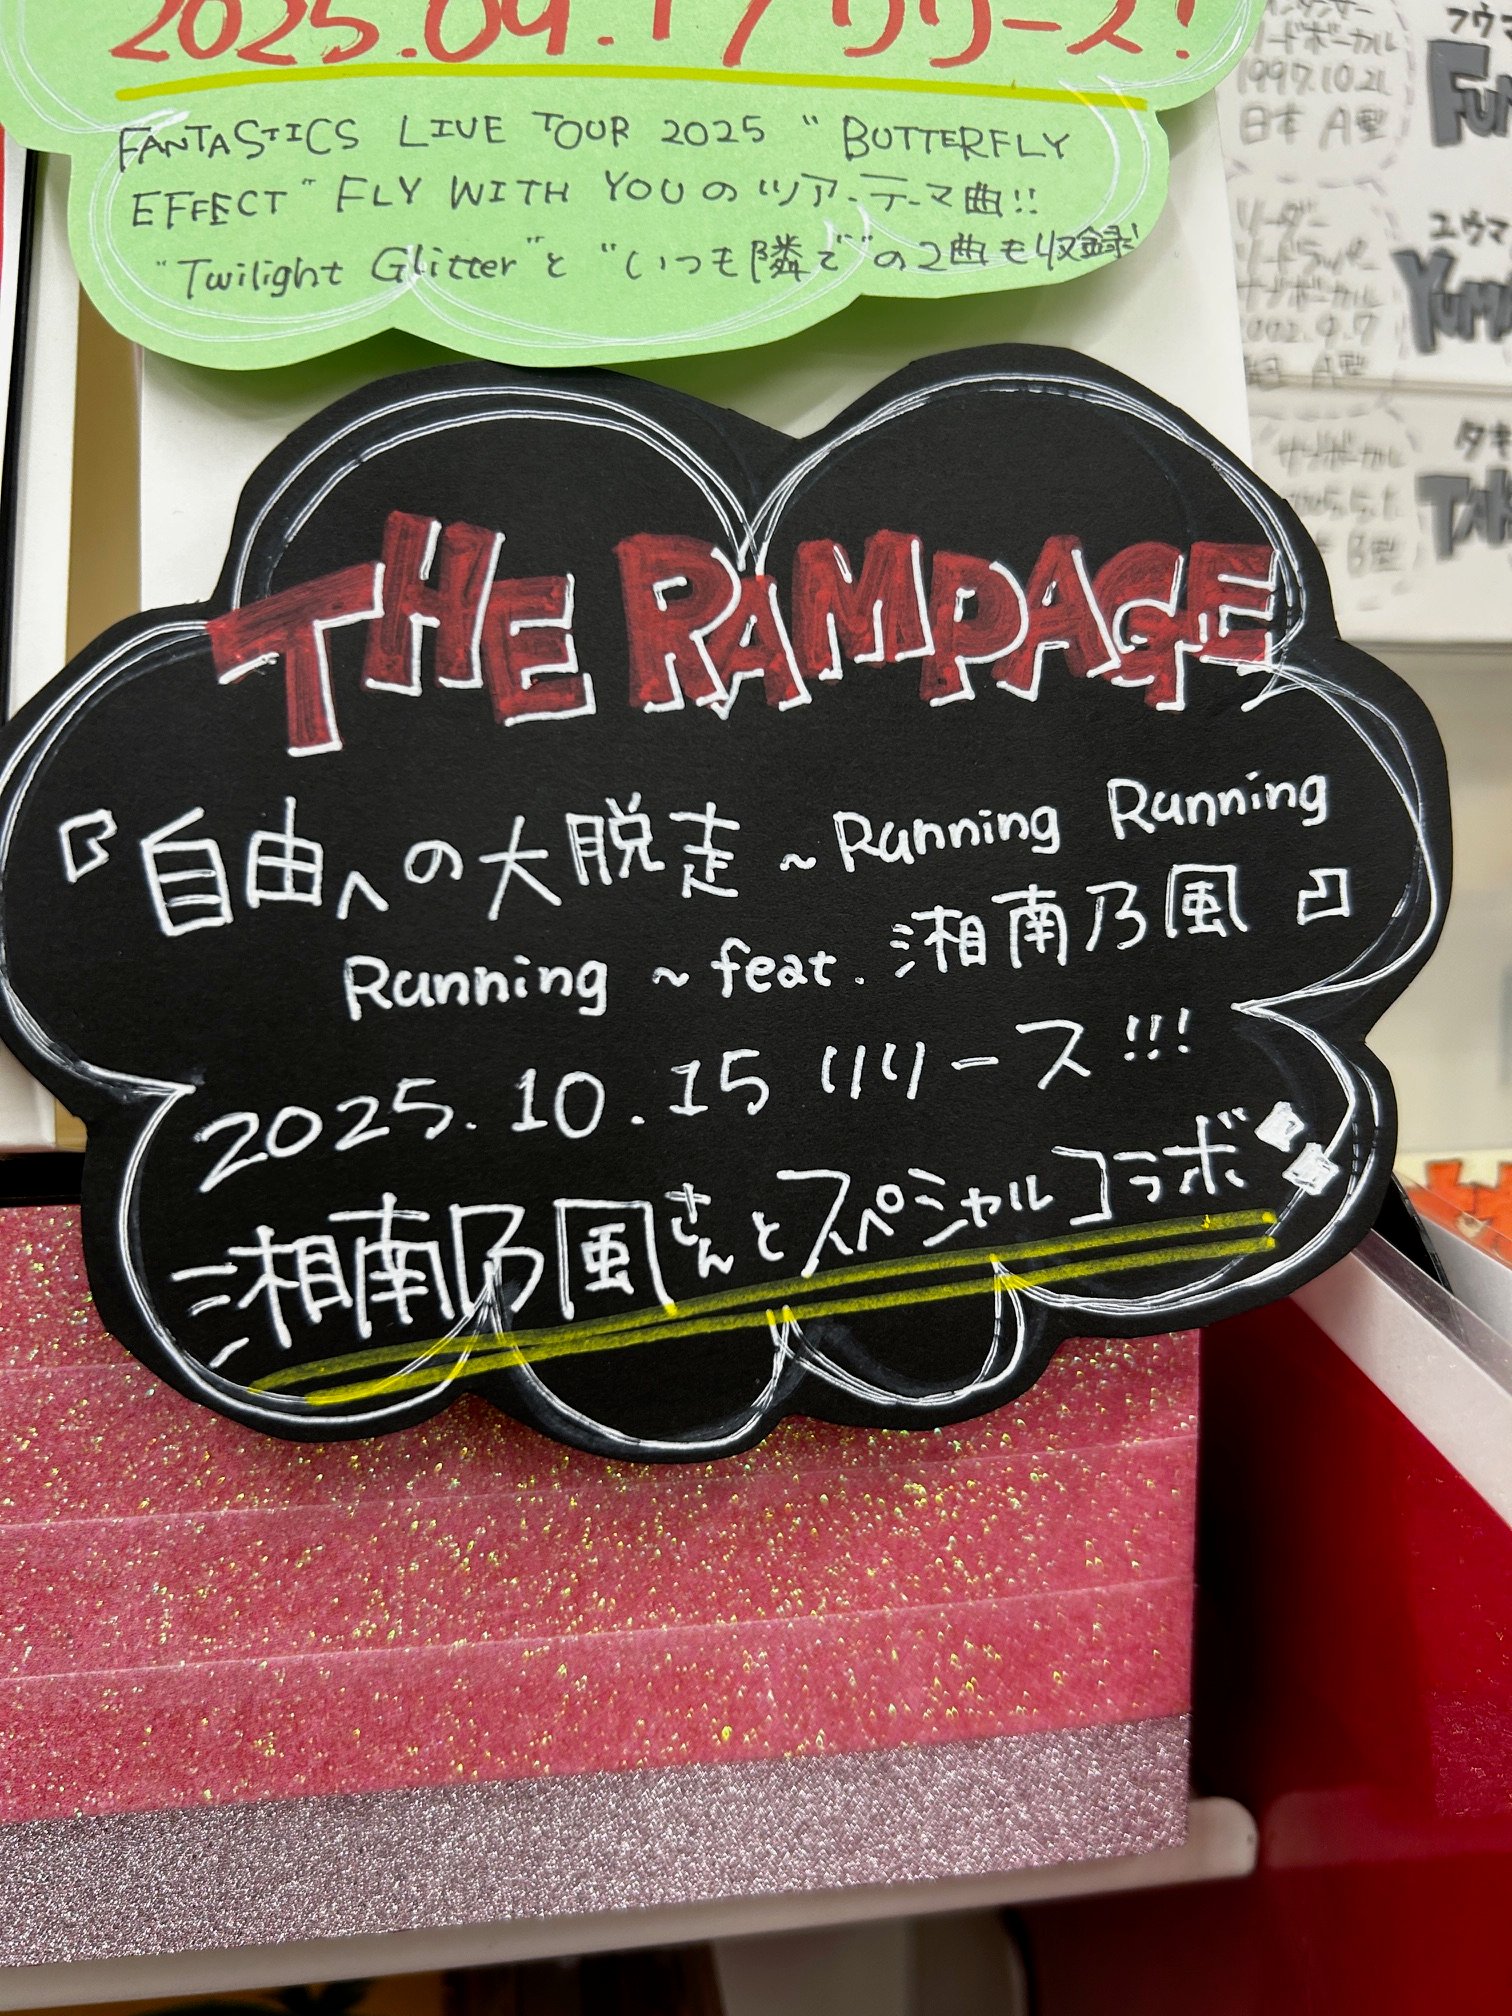 2025.09.17 リリース!
FANTASTICS LIVE TOUR 2025 "BUTTERFLY
EFFECT" FLY WITH YOUのツアーテーマ曲!!
"Twilight Glitter"と"いつも隣で"の2曲も収録!
THE RAMPAGE
『自由への大脱走 ~Running Running
Running ~ feat. 湘南乃風』
2025.10.15 リリース!!!
湘南乃風さんとスペシャルコラボ
ードボーカル
1997.10.21
日本 A型
フウマ
リーダー
ユウマ
A型
タキ
サブボーカル